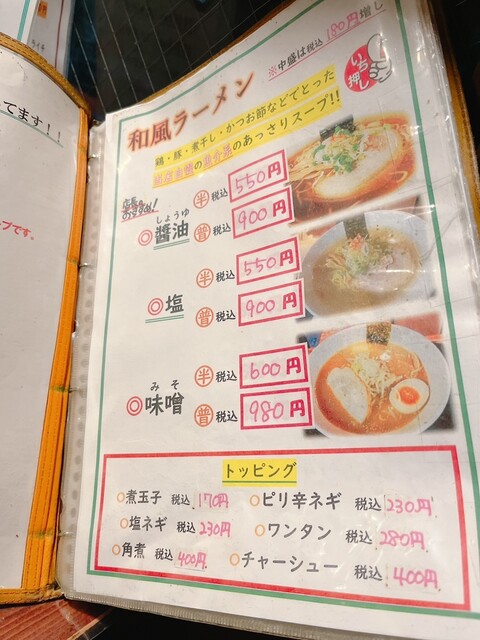 てます!!
プです。
※中盛は税込180円増し
いち押し
和風ラーメン
鶏・豚・煮干し・かつお節などでとった
のあっさりスープ!!
店長おすすめ!
しょうゆ
◎醤油
半 税込 550円
普 税込 900円
◎塩
半 税込 550円
普 税込 900円
みそ
◎味噌
半 税込 600円
普 税込 980円
トッピング
○煮玉子 税込 170円
○ピリ辛ネギ 税込 230円
○塩ネギ 税込 230円
○ワンタン 税込 280円
○角煮 税込 400円
○チャーシュー 税込 400円